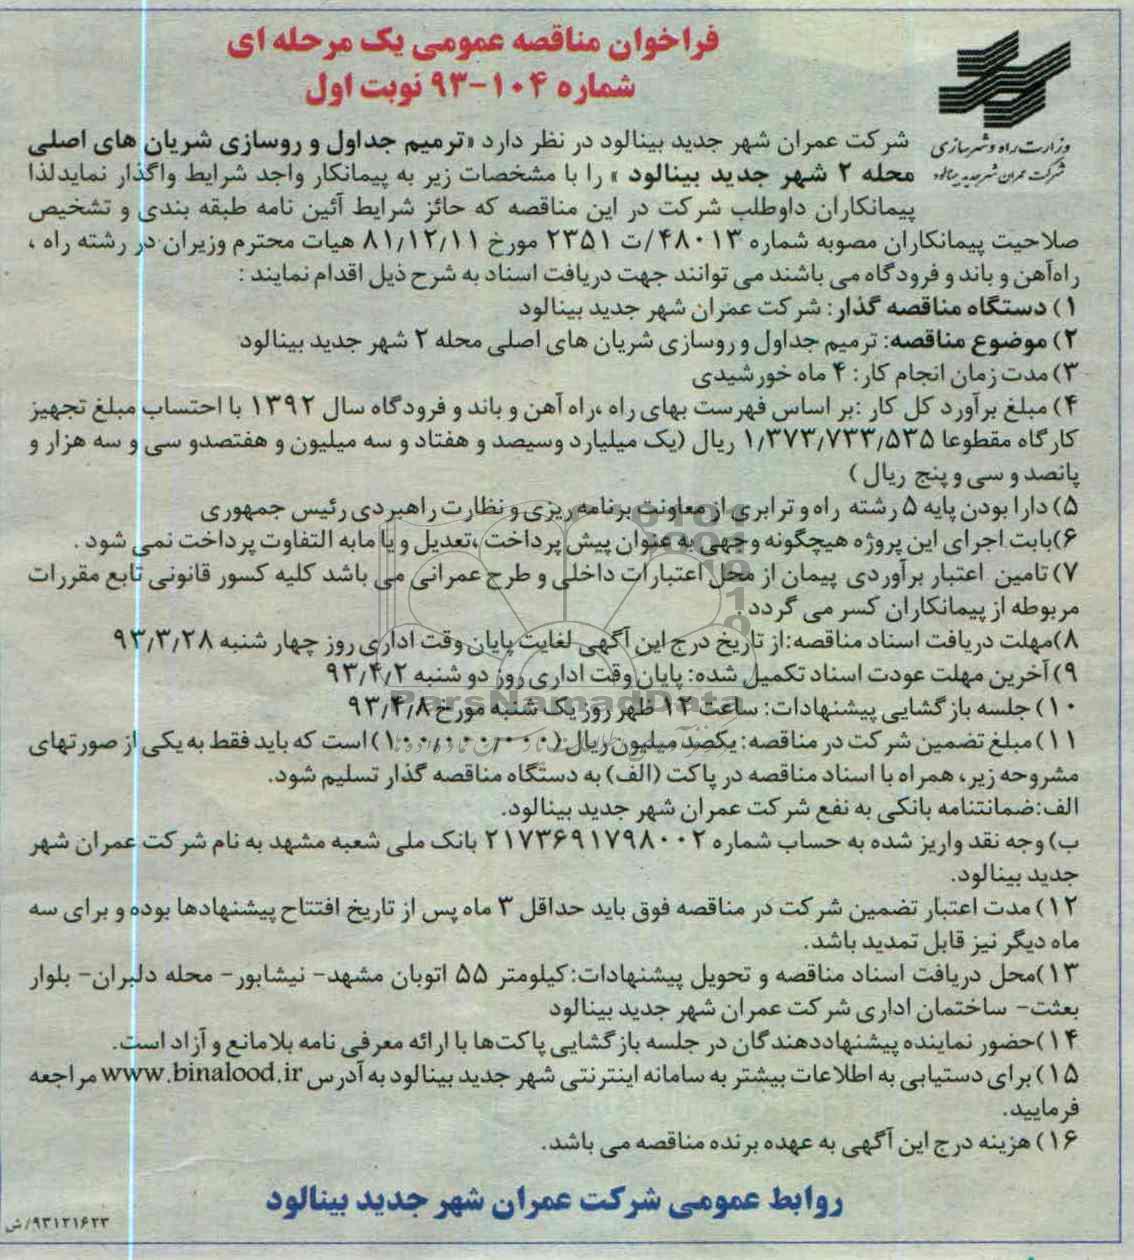 فراخوان مناقصه عمومی یک مرحله ای
شماره ۱۰۴-۹۳ نوبت اول
وزارت راه و شهرسازی
شرکت عمران شهر جدید بینالود
شرکت عمران شهر جدید بینالود در نظر دارد «ترمیم جداول و روسازی شریان های اصلی
محله ۲ شهر جدید بینالود » را با مشخصات زیر به پیمانکار واجد شرایط واگذار نمایدلذا
پیمانکاران داوطلب شرکت در این مناقصه که حائز شرایط آئین نامه طبقه بندی و تشخیص
صلاحیت پیمانکاران مصوبه شماره ۴۸۰۱۳/ت ۲۳۵۱ مورخ ۸۱/۱۲/۱۱ هیات محترم وزیران در رشته راه ،
راه‌آهن و باند و فرودگاه می باشند می توانند جهت دریافت اسناد به شرح ذیل اقدام نمایند :
۱) دستگاه مناقصه گذار: شرکت عمران شهر جدید بینالود
۲) موضوع مناقصه: ترمیم جداول و روسازی شریان های اصلی محله ۲ شهر جدید بینالود
۳) مدت زمان انجام کار: ۴ ماه خورشیدی
۴) مبلغ برآورد کل کار :بر اساس فهرست بهای راه ،راه آهن و باند و فرودگاه سال ۱۳۹۲ با احتساب مبلغ تجهیز
کارگاه مقطوعا ۱/۳۷۳/۷۳۳/۵۳۵ ریال (یک میلیارد وسیصد و هفتاد و سه میلیون و هفتصدو سی و سه هزار و
پانصد و سی و پنج ریال )
۵) دارا بودن پایه ۵ رشته راه و ترابری از معاونت برنامه ریزی و نظارت راهبردی رئیس جمهوری
۶)بابت اجرای این پروژه هیچگونه وجهی به عنوان پیش پرداخت ،تعدیل و یا مابه التفاوت پرداخت نمی شود .
۷) تامین اعتبار برآوردی پیمان از محل اعتبارات داخلی و طرح عمرانی می باشد کلیه کسور قانونی تابع مقررات
مربوطه از پیمانکاران کسر می گردد .
۸)مهلت دریافت اسناد مناقصه:از تاریخ درج این آگهی لغایت پایان وقت اداری روز چهار شنبه ۹۳/۳/۲۸
۹) آخرین مهلت عودت اسناد تکمیل شده: پایان وقت اداری روز دو شنبه ۹۳/۴/۲
ParsNamadData
۱۰) جلسه بازگشایی پیشنهادات: ساعت ۱۲ ظهر روز یک شنبه مورخ ۹۳/۴/۸
۱۱) مبلغ تضمین شرکت در مناقصه: یکصد میلیون ریال (۱۰۰/۰۰۰/۰۰۰) است که باید فقط به یکی از صورتهای
مشروحه زیر، همراه با اسناد مناقصه در پاکت (الف) به دستگاه مناقصه گذار تسلیم شود.
الف:ضمانتنامه بانکی به نفع شرکت عمران شهر جدید بینالود.
ب) وجه نقد واریز شده به حساب شماره ۲۱۷۳۶۹۱۷۹۸۰۰۲ بانک ملی شعبه مشهد به نام شرکت عمران شهر
جدید بینالود.
۱۲) مدت اعتبار تضمین شرکت در مناقصه فوق باید حداقل ۳ ماه پس از تاریخ افتتاح پیشنهادها بوده و برای سه
ماه دیگر نیز قابل تمدید باشد.
۱۳)محل دریافت اسناد مناقصه و تحویل پیشنهادات:کیلومتر ۵۵ اتوبان مشهد- نیشابور- محله دلبران- بلوار
بعثت- ساختمان اداری شرکت عمران شهر جدید بینالود
۱۴)حضور نماینده پیشنهاددهندگان در جلسه بازگشایی پاکت‌ها با ارائه معرفی نامه بلامانع و آزاد است.
۱۵) برای دستیابی به اطلاعات بیشتر به سامانه اینترنتی شهر جدید بینالود به آدرس www.binalood.ir مراجعه
فرمایید.
۱۶) هزینه درج این آگهی به عهده برنده مناقصه می باشد.
روابط عمومی شرکت عمران شهر جدید بینالود
۹۳۱۲۱۶۲۳/ش